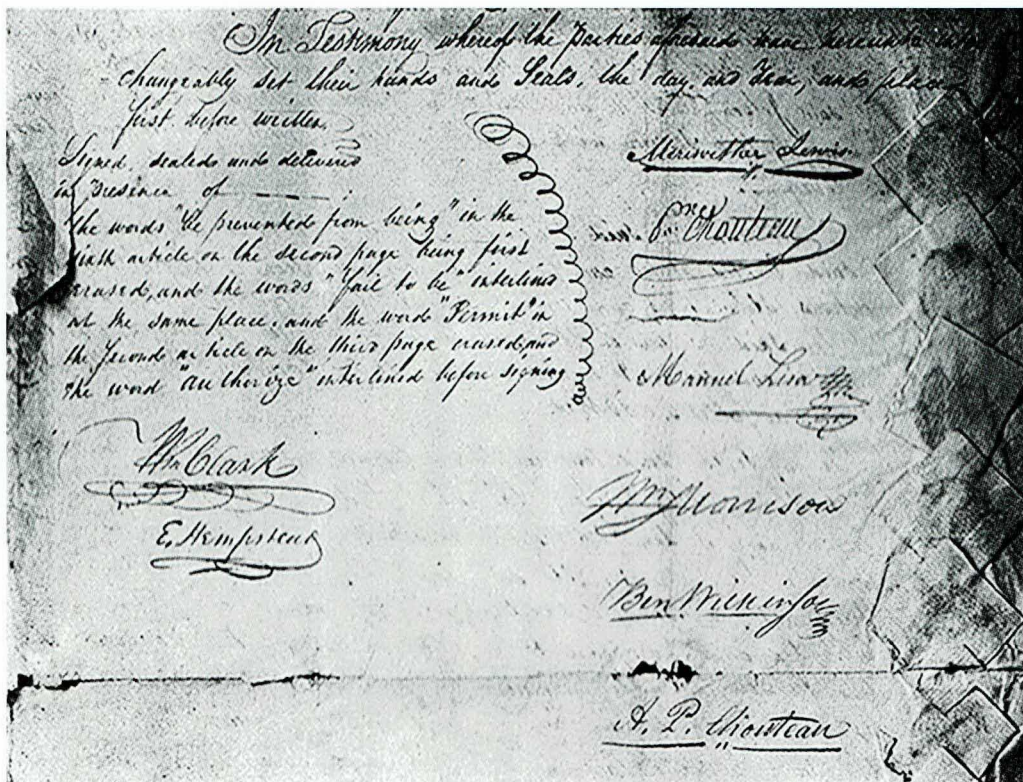 In Testimony whereof the Parties aforesaid have hereunto
changeably set their hands and Seals, the day, and Year, and place
first before written.
Signed, sealed and delivered
in Presence of
The words "be prevented from being" in the
ninth article on the second page being first
erased, and the words "fail to be" interlined
at the same place, and the word "Permit" in
the Second article on the third page erased, and
the word "authorize" interlined before signing
Wm Clark
E. Hempstead
Meriwether Lewis
Prre Chouteau
Manuel Lisa
Wm Morrison
Ben Wilkinson
A. P. Chouteau